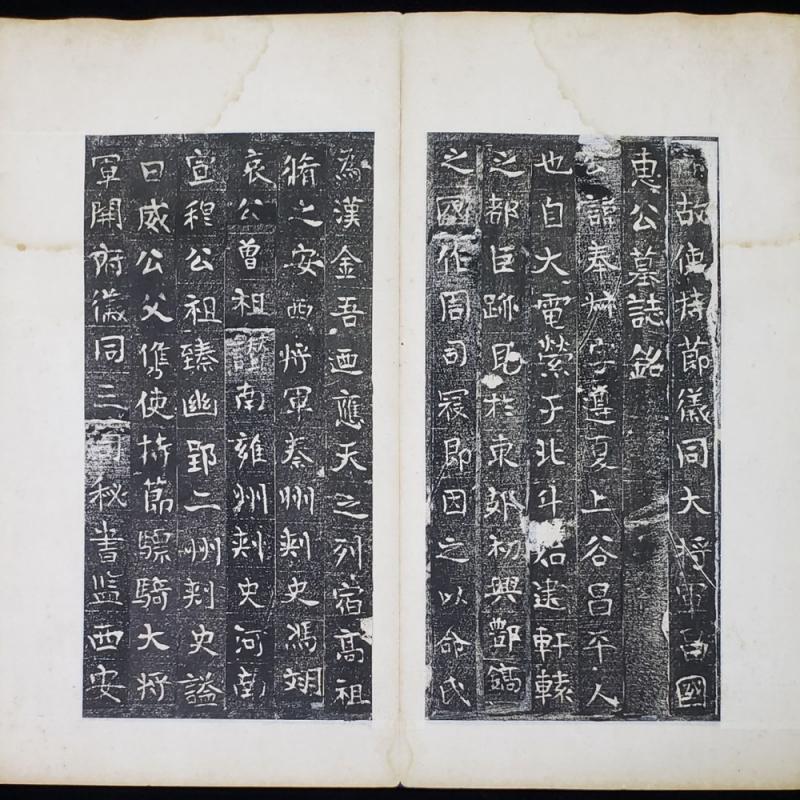 故使持節儀同大將軍國
惠公墓誌銘
公諱奉叔字遵夏上谷昌平人
也自大電縈于北斗建軒轅
之都巨跡見於東郊初興酆鎬
之國作周司寇即因之以命氏
為漢金吾迺應天之列宿高祖
脩之安西將軍秦州刺史馮翊
哀公曾祖讚南雍州刺史河南
宣穆公祖臻幽郢二州刺史謚
曰威公父儁使持節驃騎大將
軍開府儀同三司秘書監西安